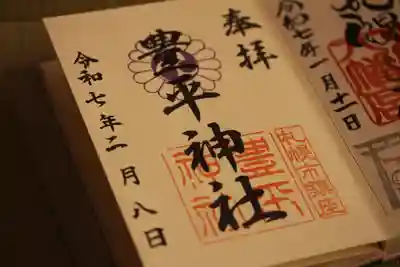 令和七年一月十一日
奉拝
豊平神社
豊平神社
札幌市鎮座
令和七年二月八日